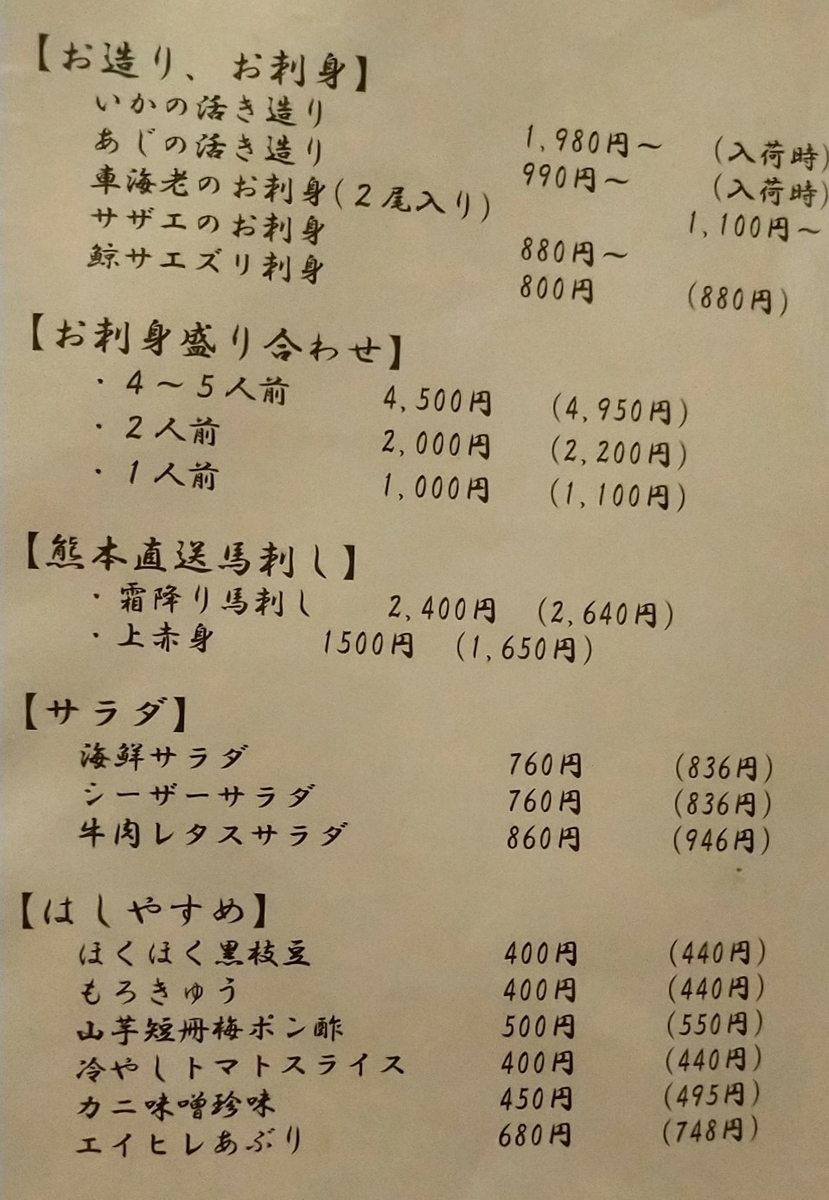 【お造り、お刺身】
いかの活き造り 1,980円～ (入荷時)
あじの活き造り 990円～ (入荷時)
車海老のお刺身(2尾入り) 1,100円～
サザエのお刺身 880円～
鯨サエズリ刺身 800円 (880円)
【お刺身盛り合わせ】
・4～5人前 4,500円 (4,950円)
・2人前 2,000円 (2,200円)
・1人前 1,000円 (1,100円)
【熊本直送馬刺し】
・霜降り馬刺し 2,400円 (2,640円)
・上赤身 1500円 (1,650円)
【サラダ】
海鮮サラダ 760円 (836円)
シーザーサラダ 760円 (836円)
牛肉レタスサラダ 860円 (946円)
【はしやすめ】
ほくほく黒枝豆 400円 (440円)
もろきゅう 400円 (440円)
山芋短冊梅ポン酢 500円 (550円)
冷やしトマトスライス 400円 (440円)
カニ味噌珍味 450円 (495円)
エイヒレあぶり 680円 (748円)